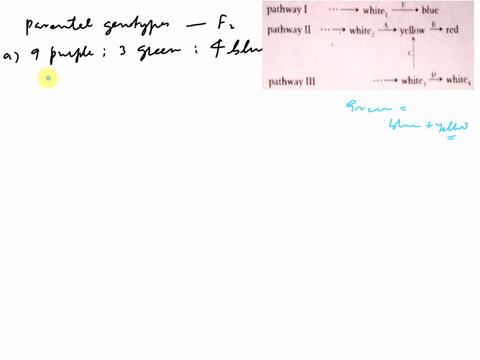 parental genotypes — F₂
a) 9 purple ; 3 green ; 4 blue
pathway I ····→ white₁ —E→ blue
pathway II ····→ white₂ —A→ yellow —B→ red
C
pathway III ····→ white₃ —D→ white₄
Green =
blue + yellow